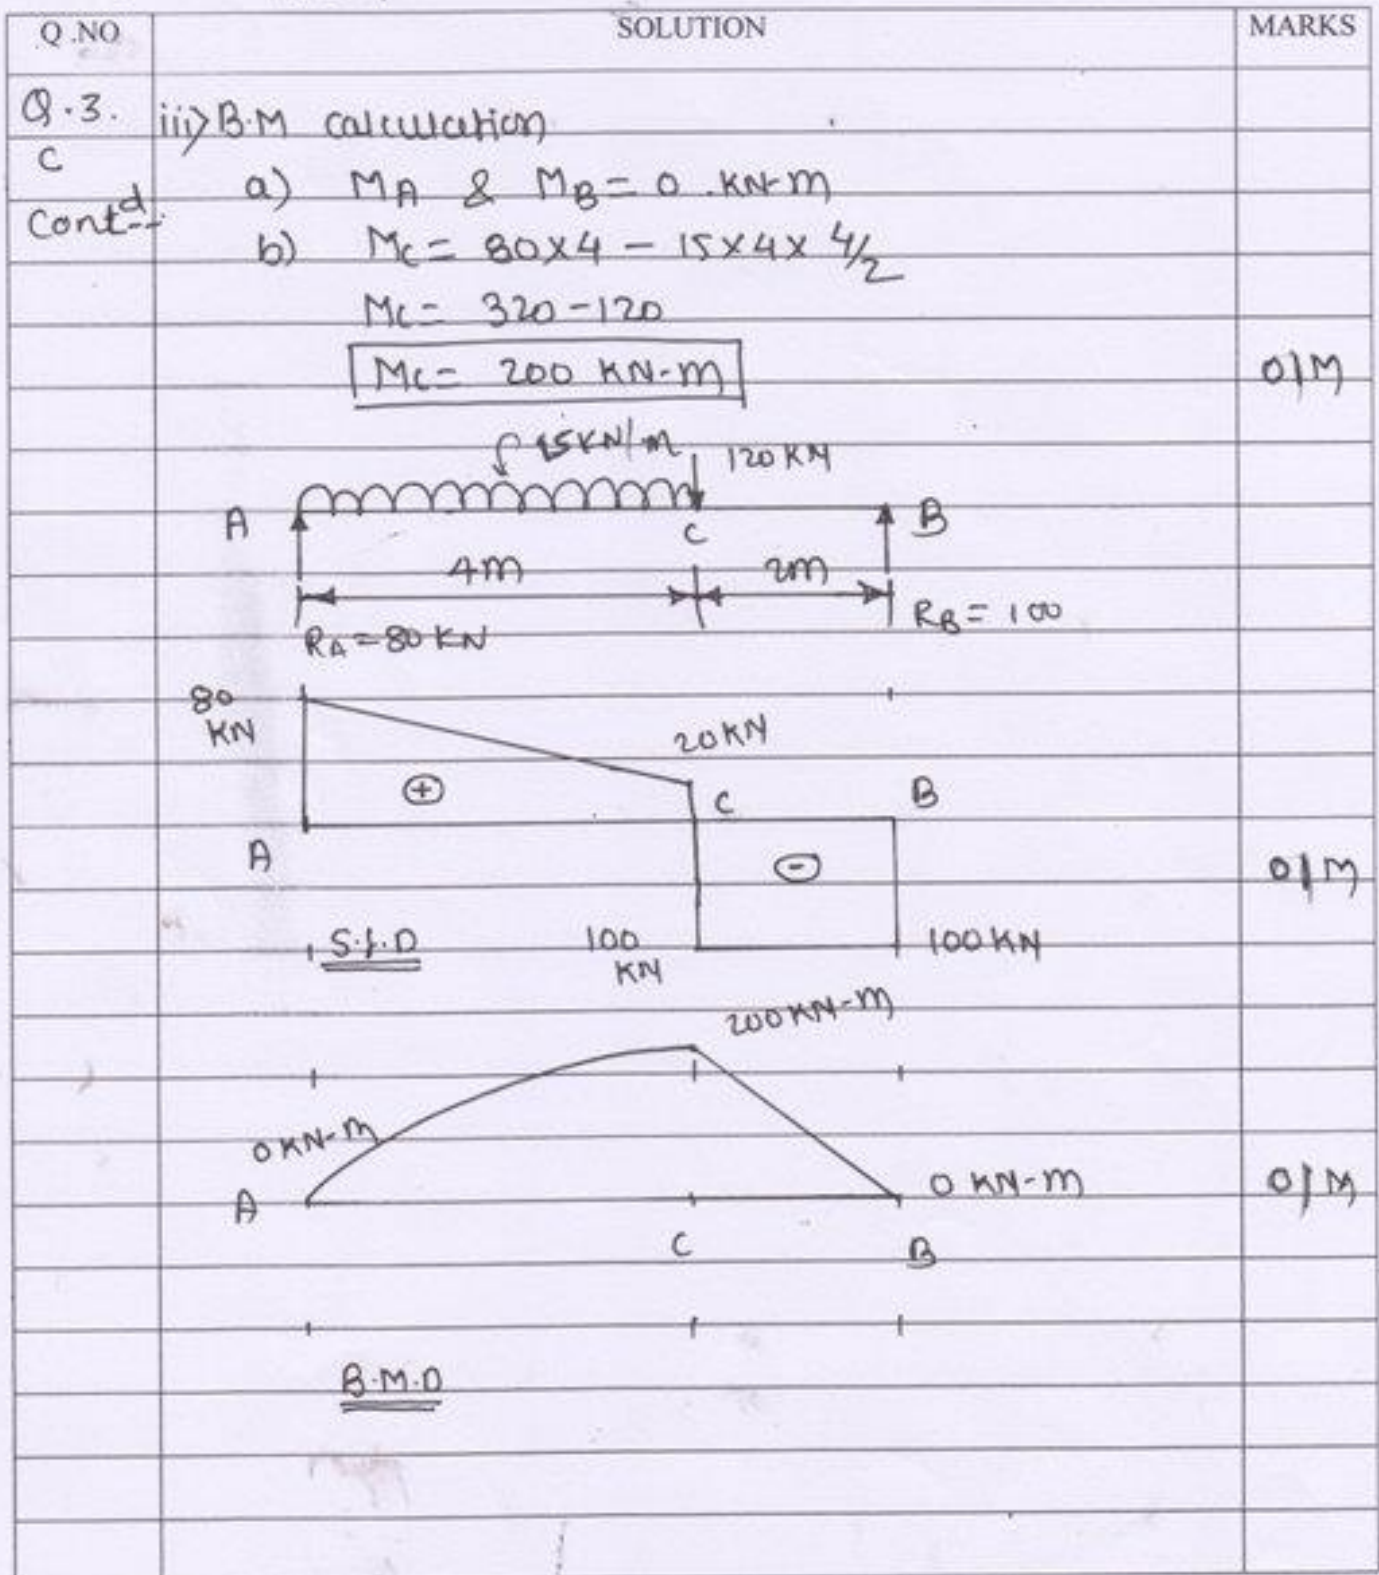 Q.NO SOLUTION MARKS
Q.3. iii) B.M calculation
C
Contd--
a) MA & MB = 0 KN-m
b) Mc = 80x4 - 15x4x 4/2
Mc = 320-120
Mc = 200 KN-m 01M
15KN/m 120 KN
A C B
4m 2m
RA = 80 KN RB = 100
80 KN 20 KN
+ C B
A - 01M
S.f.D 100 KN 100 KN
200 KN-m
0 KN-m
A 0 KN-m 01M
C B
B.M.D